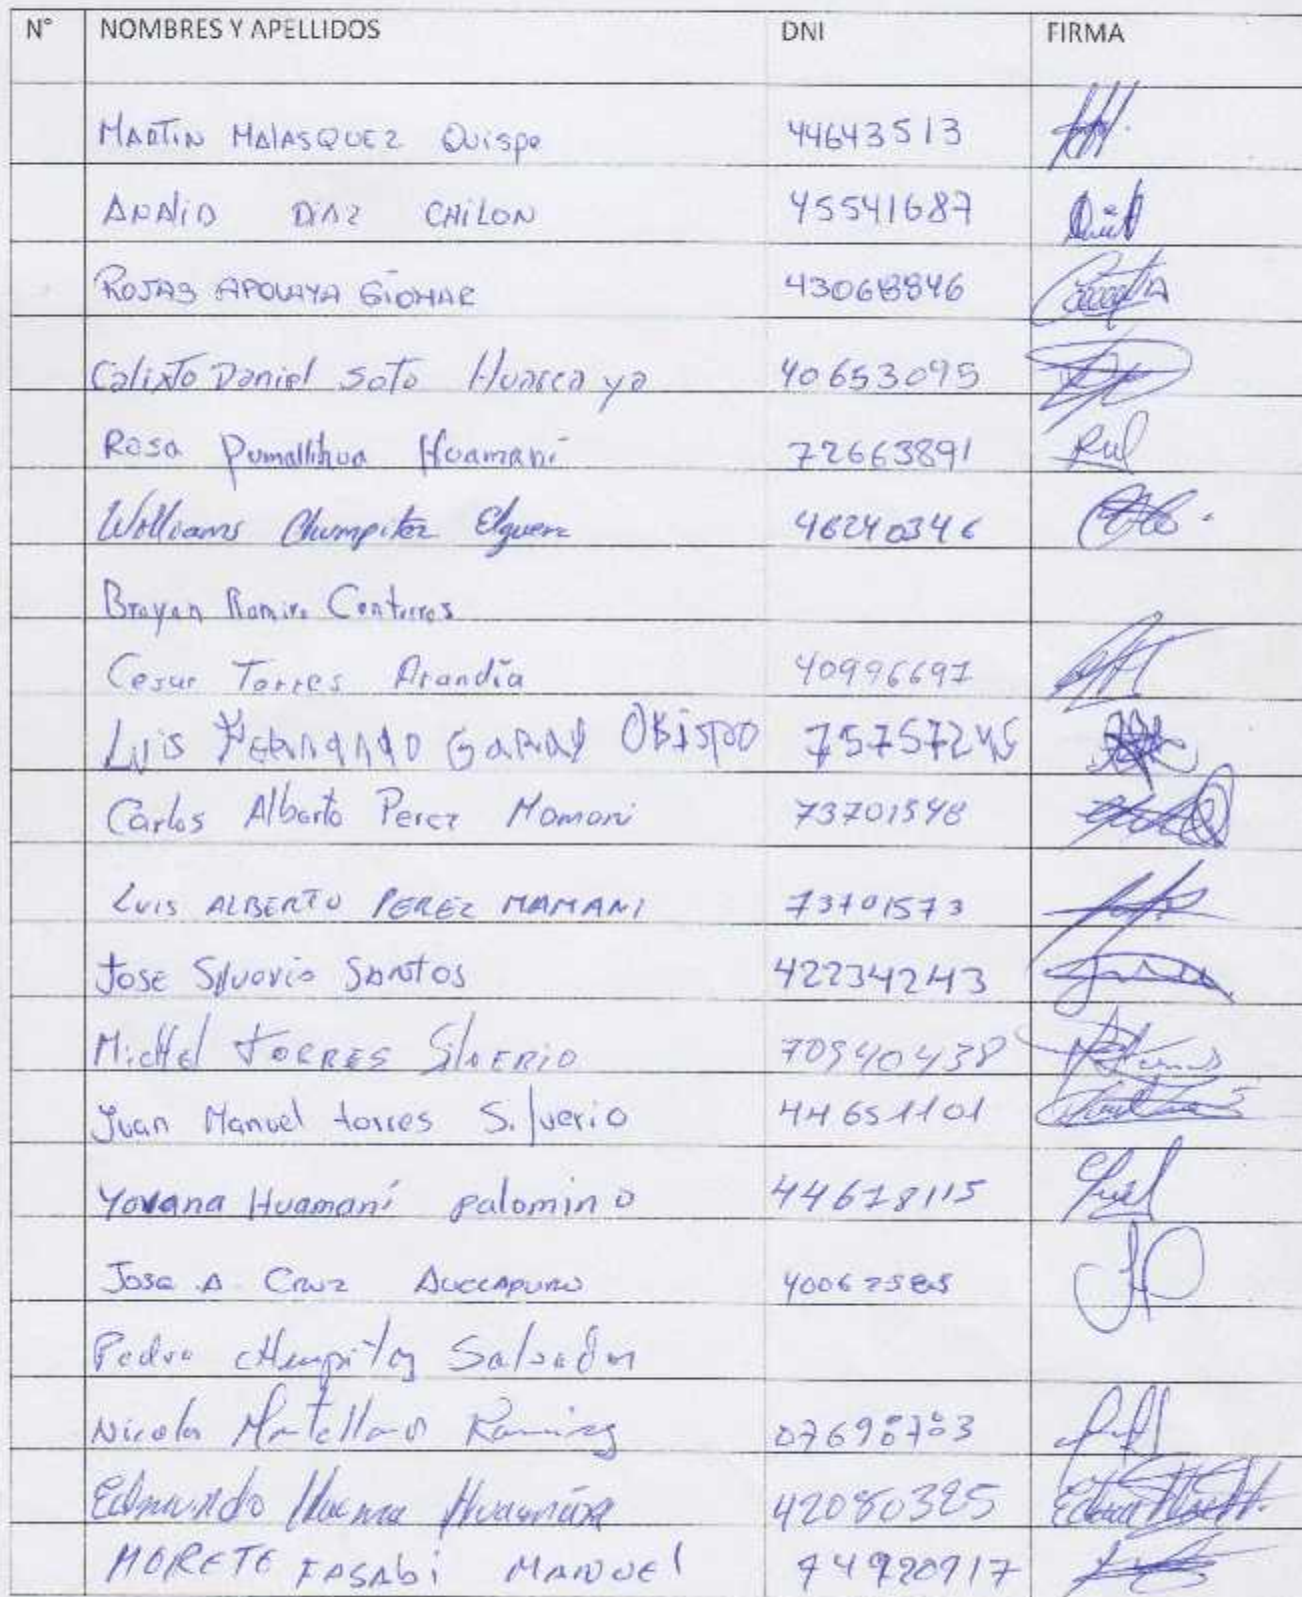 N° NOMBRES Y APELLIDOS DNI FIRMA
MARTIN MALASQUEZ Quispe 44643513
ANALID DIAZ CHILON 45541687
ROJAS APOLAYA GIOMAR
Calixto Daniel Soto Huarcaya 40653095
Rosa Pumallihua Huamaní 72663891
Williams Chumpitaz Elguera 46240346
Brayan Ramiro Contreras
Cesar Torres Arandia 40996697
LUIS FERNANDO GARAY OBISPO 75757245
Carlos Alberto Perez Mamani 73701548
LUIS ALBERTO PEREZ MAMANI 73701573
JOSE Silverio SANTOS 42234243
Michel TORRES SILVERIO 70940438
Juan Manuel torres Silverio 44651101
Yovana Huamaní palomino 44678115
Jose A. Cruz
Pedro Chumpitaz Salvador
Nicolas Ramirez
Edmundo 42080325
MORETE FASABi MANUEl 74920917